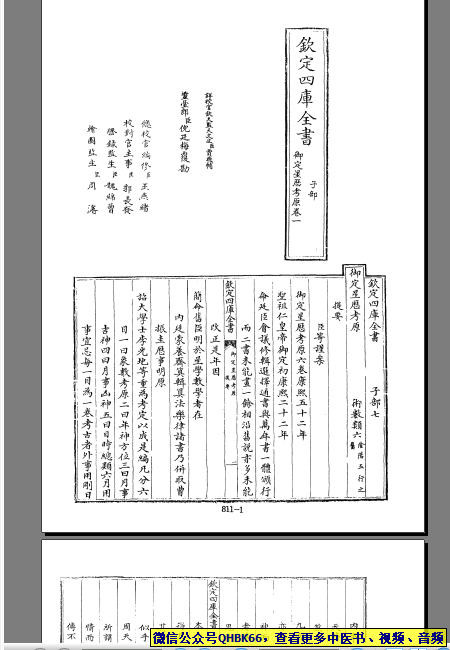 欽定四庫全書
子部
御定星歷考原卷一
詳校官欽天監天文生臣曹典輔
靈臺郎臣倪廷梅覆勘
總校官編修臣王燕緒
校對官主事臣郭長發
謄錄監生臣魏照
繪圖監生臣周濬
欽定四庫全書 子部七
御定星歷考原 術數類六 陰陽五行之屬
提要
臣等謹案
御定星歷考原六卷康熙五十二年
聖祖仁皇帝御定初康熙二十二年
命廷臣會議修輯選擇通書與萬年書一體頒行
而二書未能畫一餘相沿舊說亦多未能
改正是年因
欽定四庫全書 御定星歷考原 提要 一
簡命舊臣明於星學數學者在
內廷蒙養齋纂輯算法樂律諸書乃併取曹
振圭歷事明原
詔大學士李光地等重為考定以成是編凡分六
目一曰象數考原二曰年神方位三曰月事
吉神四曰月事凶神五曰日時總類六曰用
事宜忌每一目為一卷考古者外事用剛日
811-1
欽定四庫全書
似乎
周天
所謂
情而
傳不
微信公众号QHBK66，查看更多中医书、视频、音频